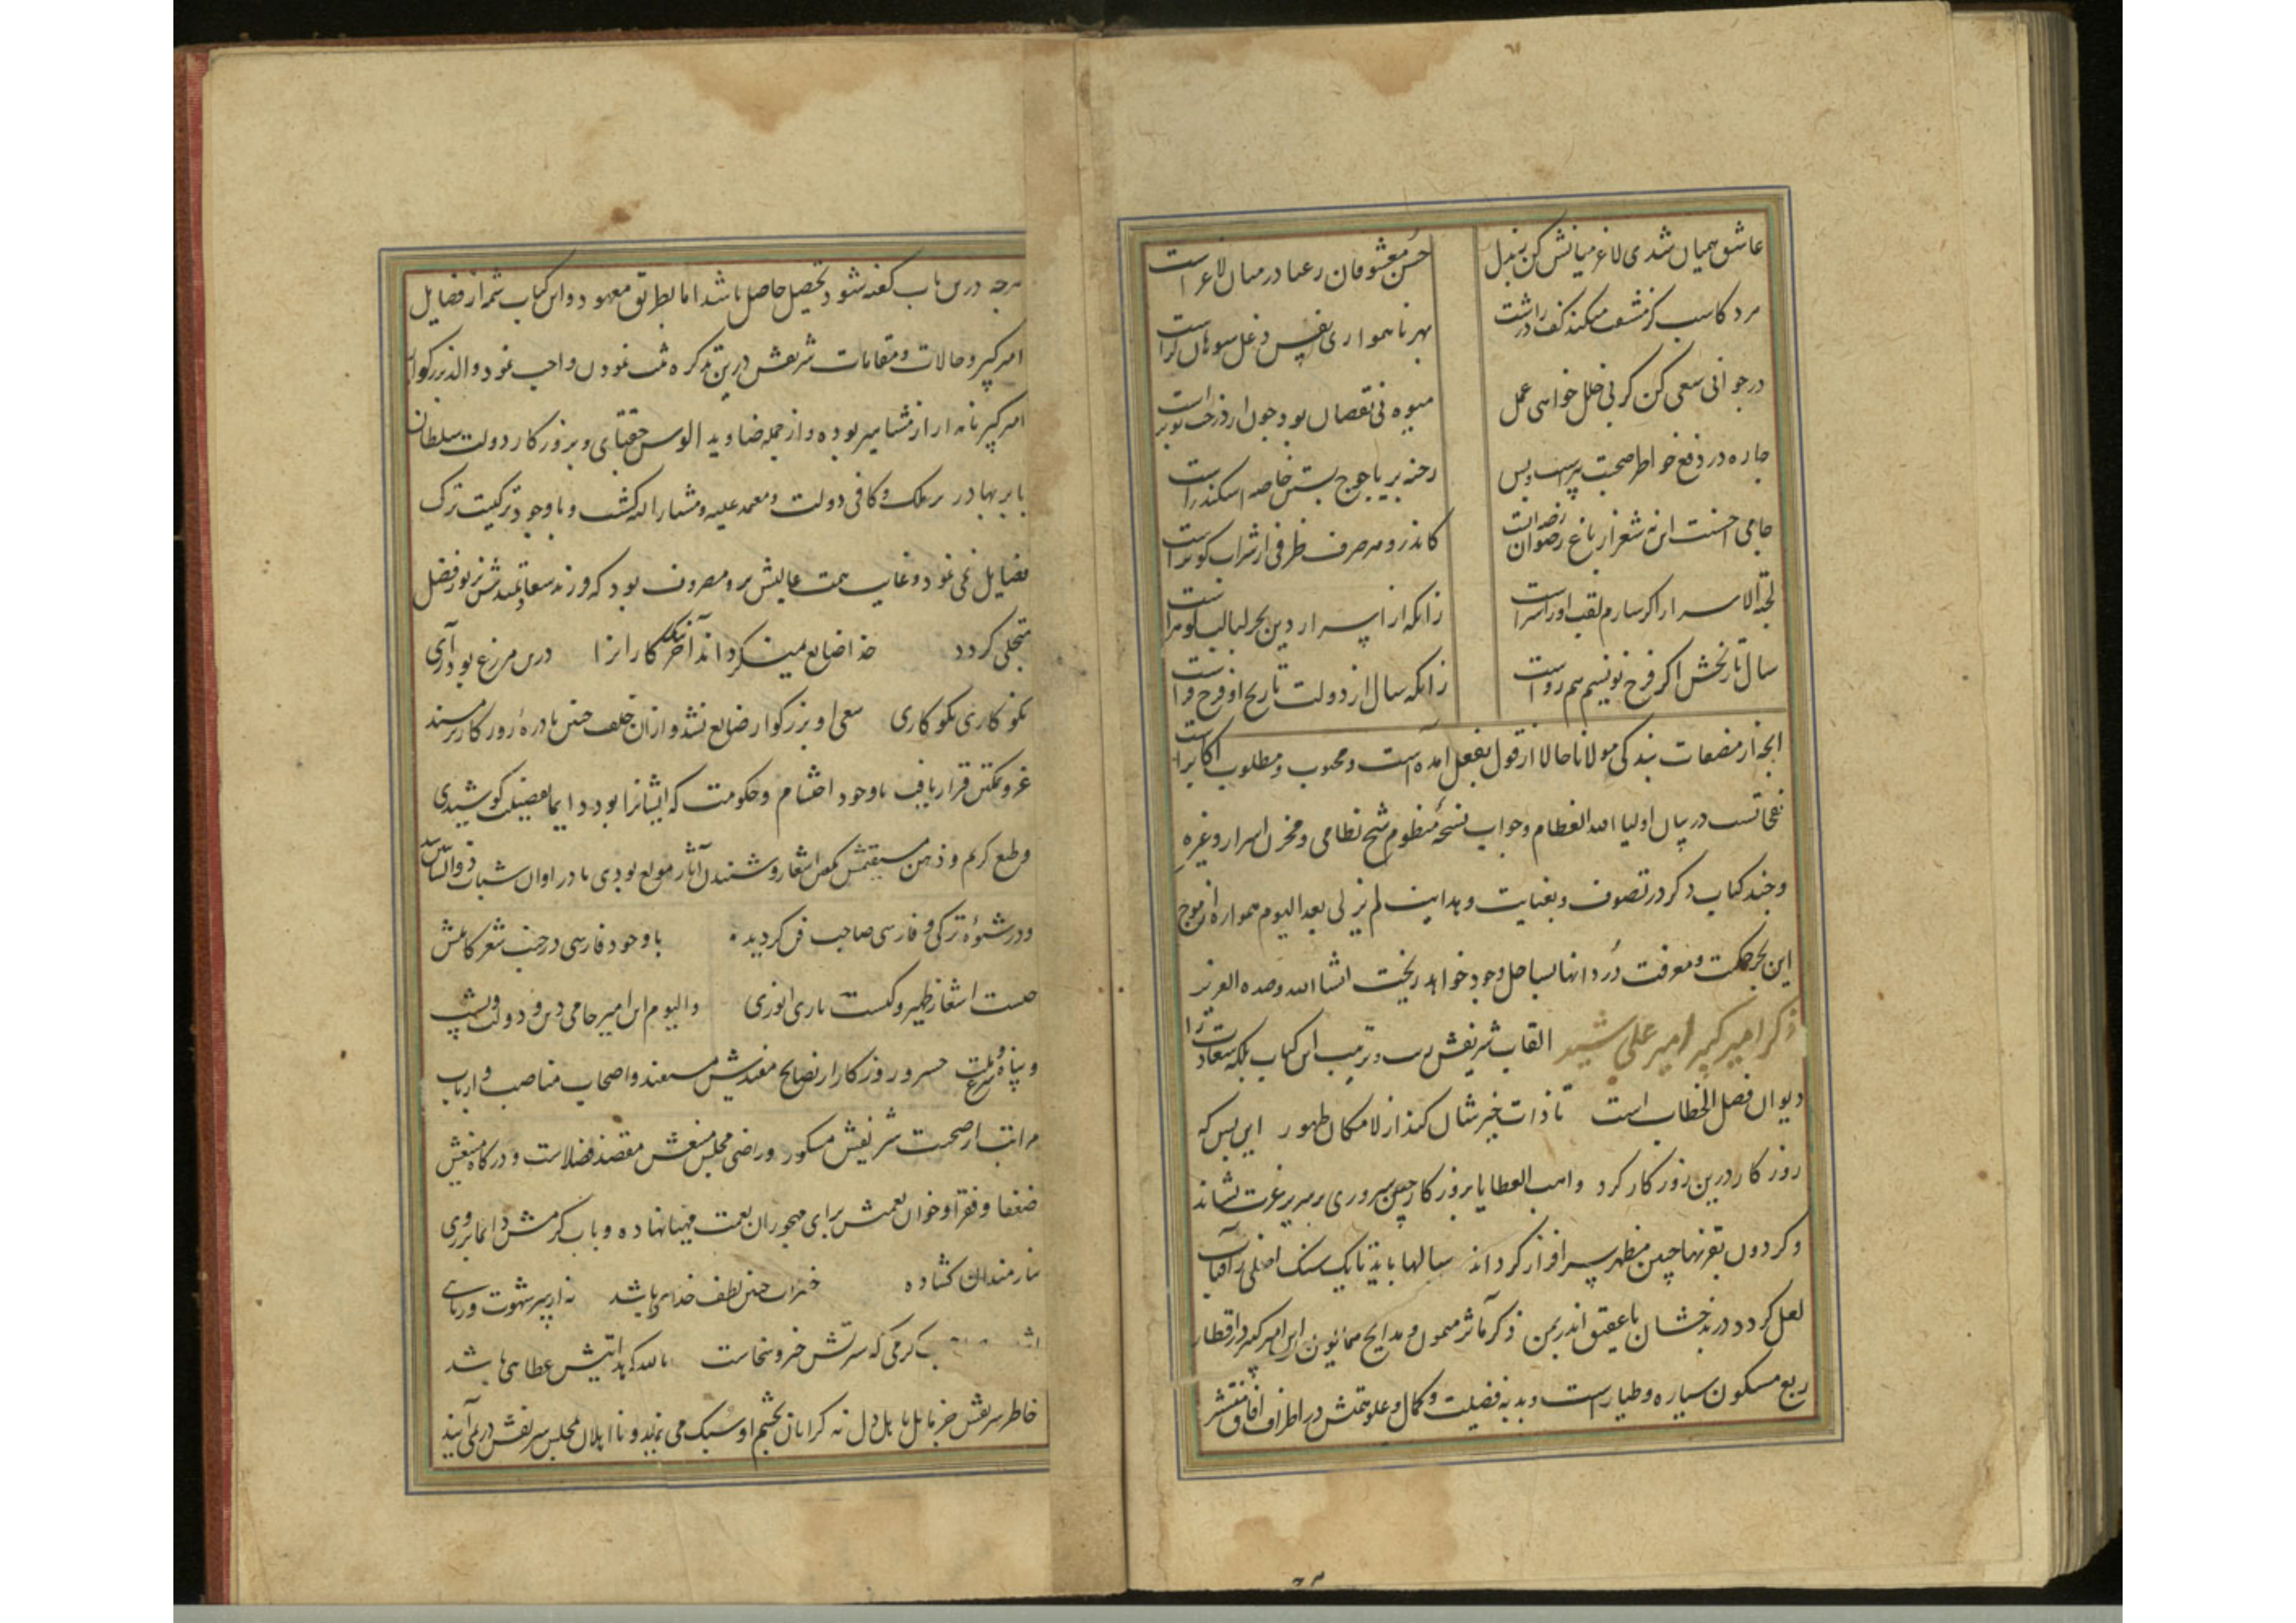 عاشق همیان شدی لاغر میانش کن ببذل حسن معشوقان رعنا در میان لاغر است
مرد کاسب کز مشقت میکند کف را درشت بهر ناهمواری نفس دغل سوهان گر است
در جوانی سعی کن گر بی خلل خواهی عمل میوه بی نقصان بود چون از درخت نوبر است
چاره در دفع خواطر صحبت پیرست و بس رخنه بر یاجوج بستن خاصه اسکندر است
جامی احسنت این نه شعر از باغ رضوان روضه‌ایست کاندرو هر حرف ظرفی از شراب کوثر است
لجة الاسرار اگر سازم لقب او را سزاست زانکه از اسرار دین بحر لبالب گوهر است
سال تاریخش اگر فرخ نویسم هم رواست زانکه سال از دولت تاریخ او فرخ فر است
انچه از مصنفات بندگی مولانا حالا از قول بفعل امده است و محبوب و مطلوب اکابر است
نفحاتست در بیان اولیا الله العظام و جواب نسخه منظوم شیخ نظامی و مخزن اسرار و غیره
و چند کتاب دگر در تصوف و بعنایت و هدایت لم یزلی بعد الیوم همواره از موج
این بحر حکمت و معرفت دردانها بساحل وجود خواهد ریخت انشا الله وحده العزیز
ذکر امیر کبیر امیر علی شیر القاب شریفش و ترتیب این کتاب بلکه سعادت را
دیوان فصل الخطاب است تا ذات خیرشان کند از لامکان ظهور این بس که
روزگار درین روزگار کرد واهب العطایا بروزگار چنین سروری بر سریر عزت نشاند
و گردون بقرنها چنین مظهر سرافراز گرداند سالها باید تا یک سنک اصلی ز آفتاب
لعل گردد در بدخشان یا عقیق اندر یمن ذکر مآثر میمون و مدایح همایون این امیر کبیر در اقطار
ربع مسکون سیاره و طیار است و بدبه فضیلت و کمال و علو همتش در اطراف افاق منتشر
هرچه درین باب گفته شود تحصیل حاصل باشد اما بطریق معهود دو این کتاب شمه از فضایل
امیر کبیر و حالات و مقامات شریفش درین تذکره ثبت نمودن واجب نمود والد بزرگوار
امیر کبیر نامدار از مشاهیر بوده و از جمله صنادید الوس جغتای و بروزگار دولت سلطان
بابر بهادر ملک و کافی دولت و معتمد علیه و مشار الیه گشت و با وجود ترکیت ترک
فضایل نمی نمود و غایت همت عالیش برو مصروف بود که فرزند سعادتمندش بزیور فضل
متجلی گردد خدا ضایع نمیگرداند آخر نیک کاران را درین مزرع بود آری
نکو کاری نکو کاری سعی او بزرگوار ضایع نشد و ازان خلف چنین نادره روزگار بر مسند
عز و تمکین قرار یافت با وجود احتشام و حکومت که ایشانرا بود دایما بفضیلت کوشیدی
و طبع کریم و ذهن مستقیمش بگفتن اشعار و شنیدن آثار مولع بودی تا در اوان شباب ذو اللسانین
و در شیوه ترکی و فارسی صاحب فن گردید با وجود فارسی در جنب شعر کاملش
چیست اشعار ظهیر و کیست باری انوری والیوم این امیر حامی دین و دولت و پشت
و پناه شرع و ملت خسرو روزگار از نصایح مفیدش مستفید و اصحاب مناصب و ارباب
مراتب از صحبت شریفش مشکور و راضی مجلس منیعش مقصد فضلاست و درگاه منیعش
ضعفا و فقرا و خوان نعمتش برای مهجوران نعمت مهیا نهاده و باب کرمش دایما بر روی
نیازمندان گشاده خیرات چنین لطف خدای باشد نه از سر شهوت و ریای
کرمی که سرتش خیر و سخاست بالله که هدایتش عطاهی باشد
خاطر شریفش جز مایل باهل دل نه گرانان بچشم او سبک می نماید و نااهلان مجلس شریفش در نمی آیند